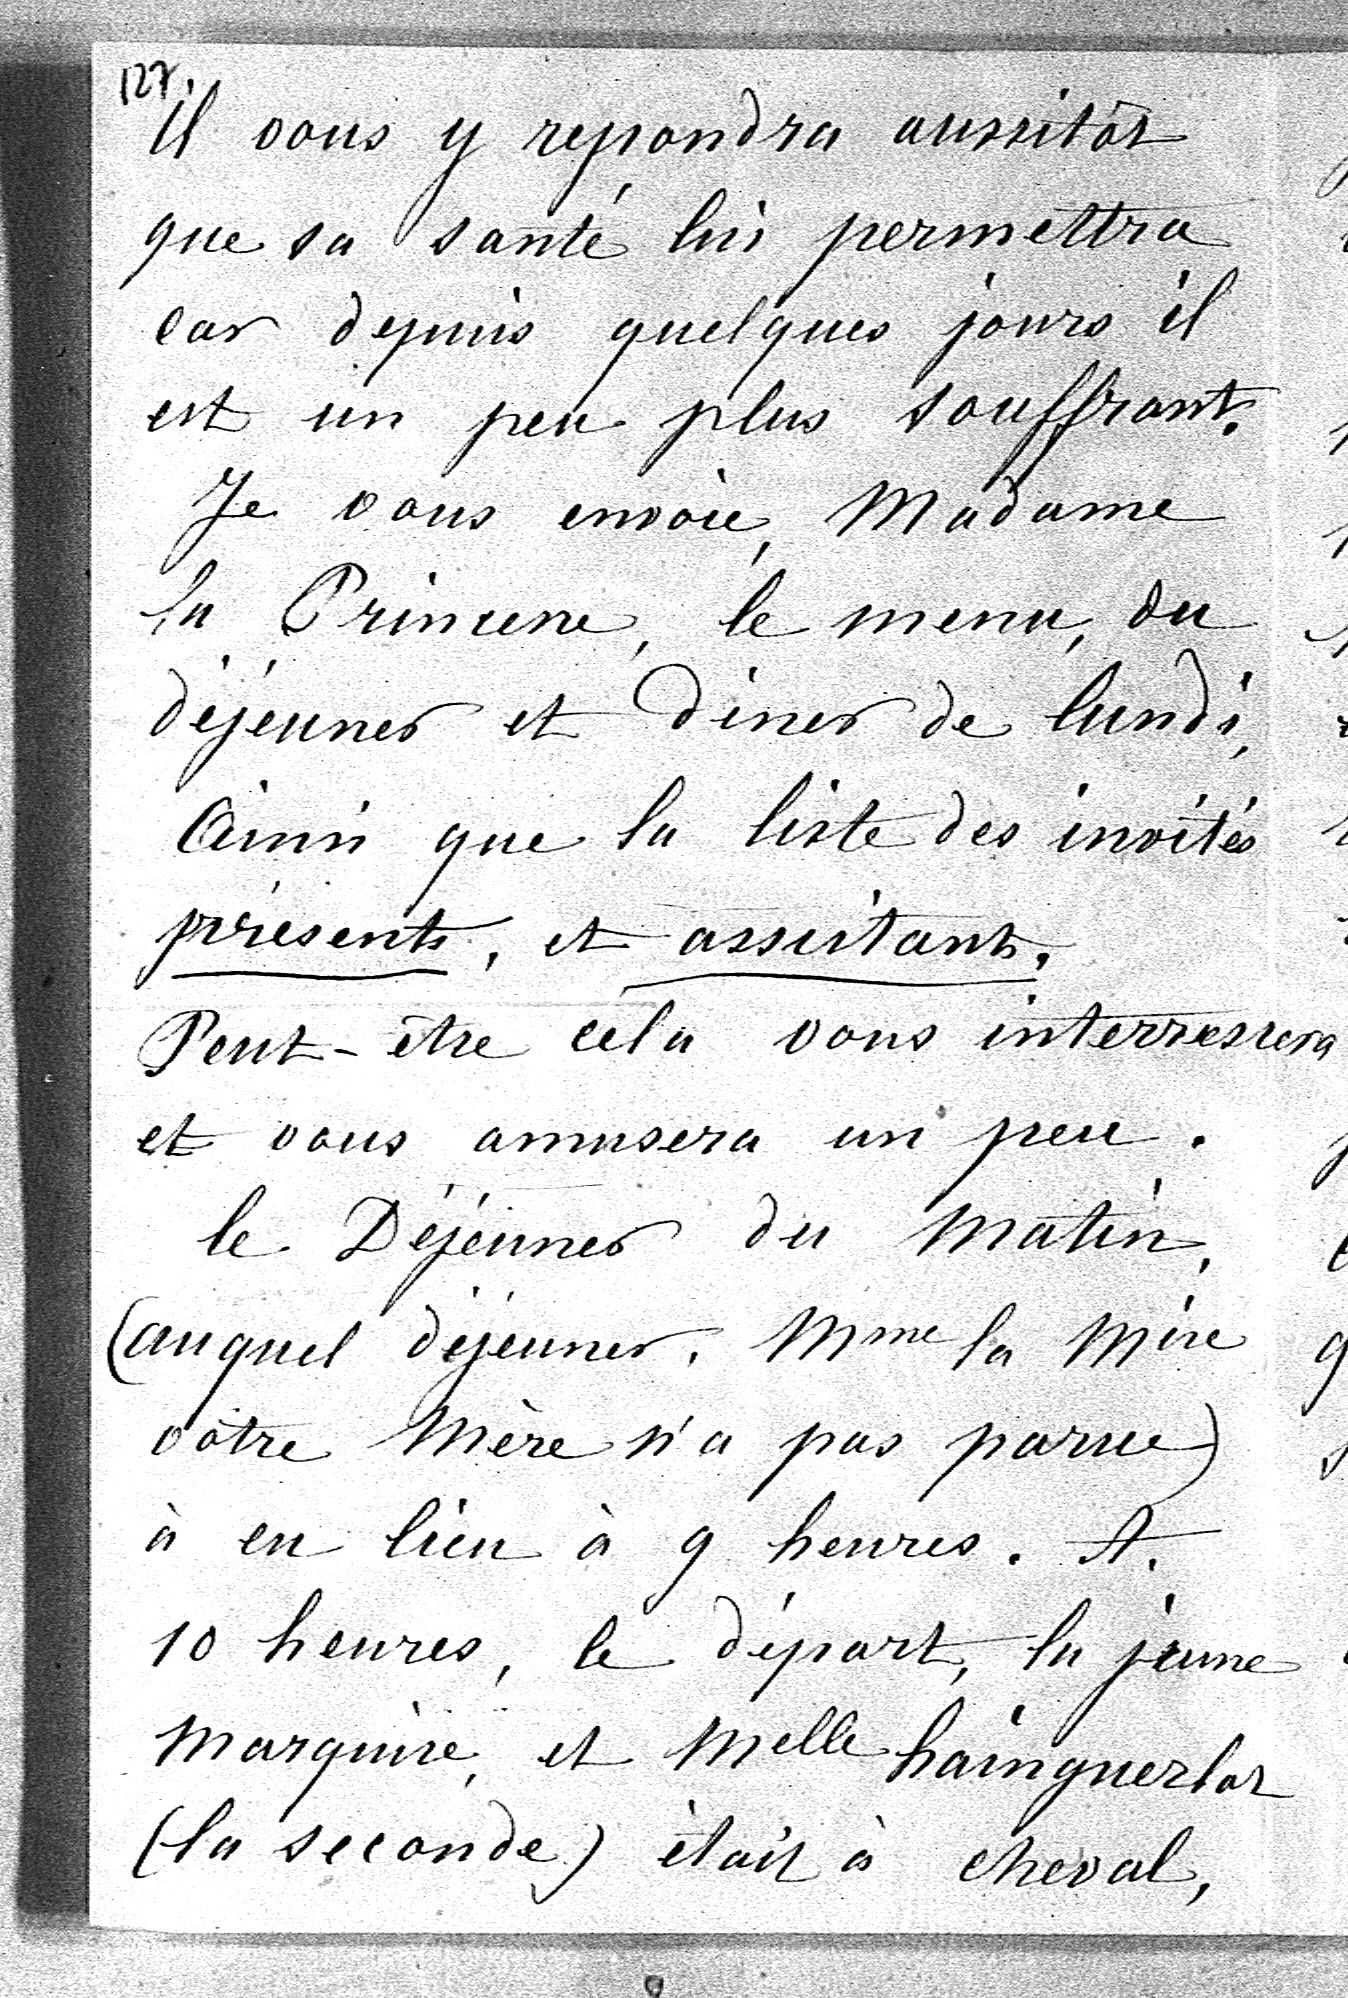 127.
Il vous y repondra aussitôt
que sa santé lui permettra
car depuis quelques jours il
est un peu plus souffrant.
Je vous envoie, Madame
la Princesse, le menu, du
déjeuner et diner de lundi,
Ainsi que la liste des invités
présents, et assistants.
Peut-être cela vous interressera
et vous amusera un peu.
le Déjeuner du Matin,
(auquel déjeuner, Mme la Mère
vôtre Mère n'a pas parue)
à eu lieu à 9 heures. A.
10 heures, le départ, la jeune
Marquise, et Melle hainguerlot
(la seconde) était à cheval,